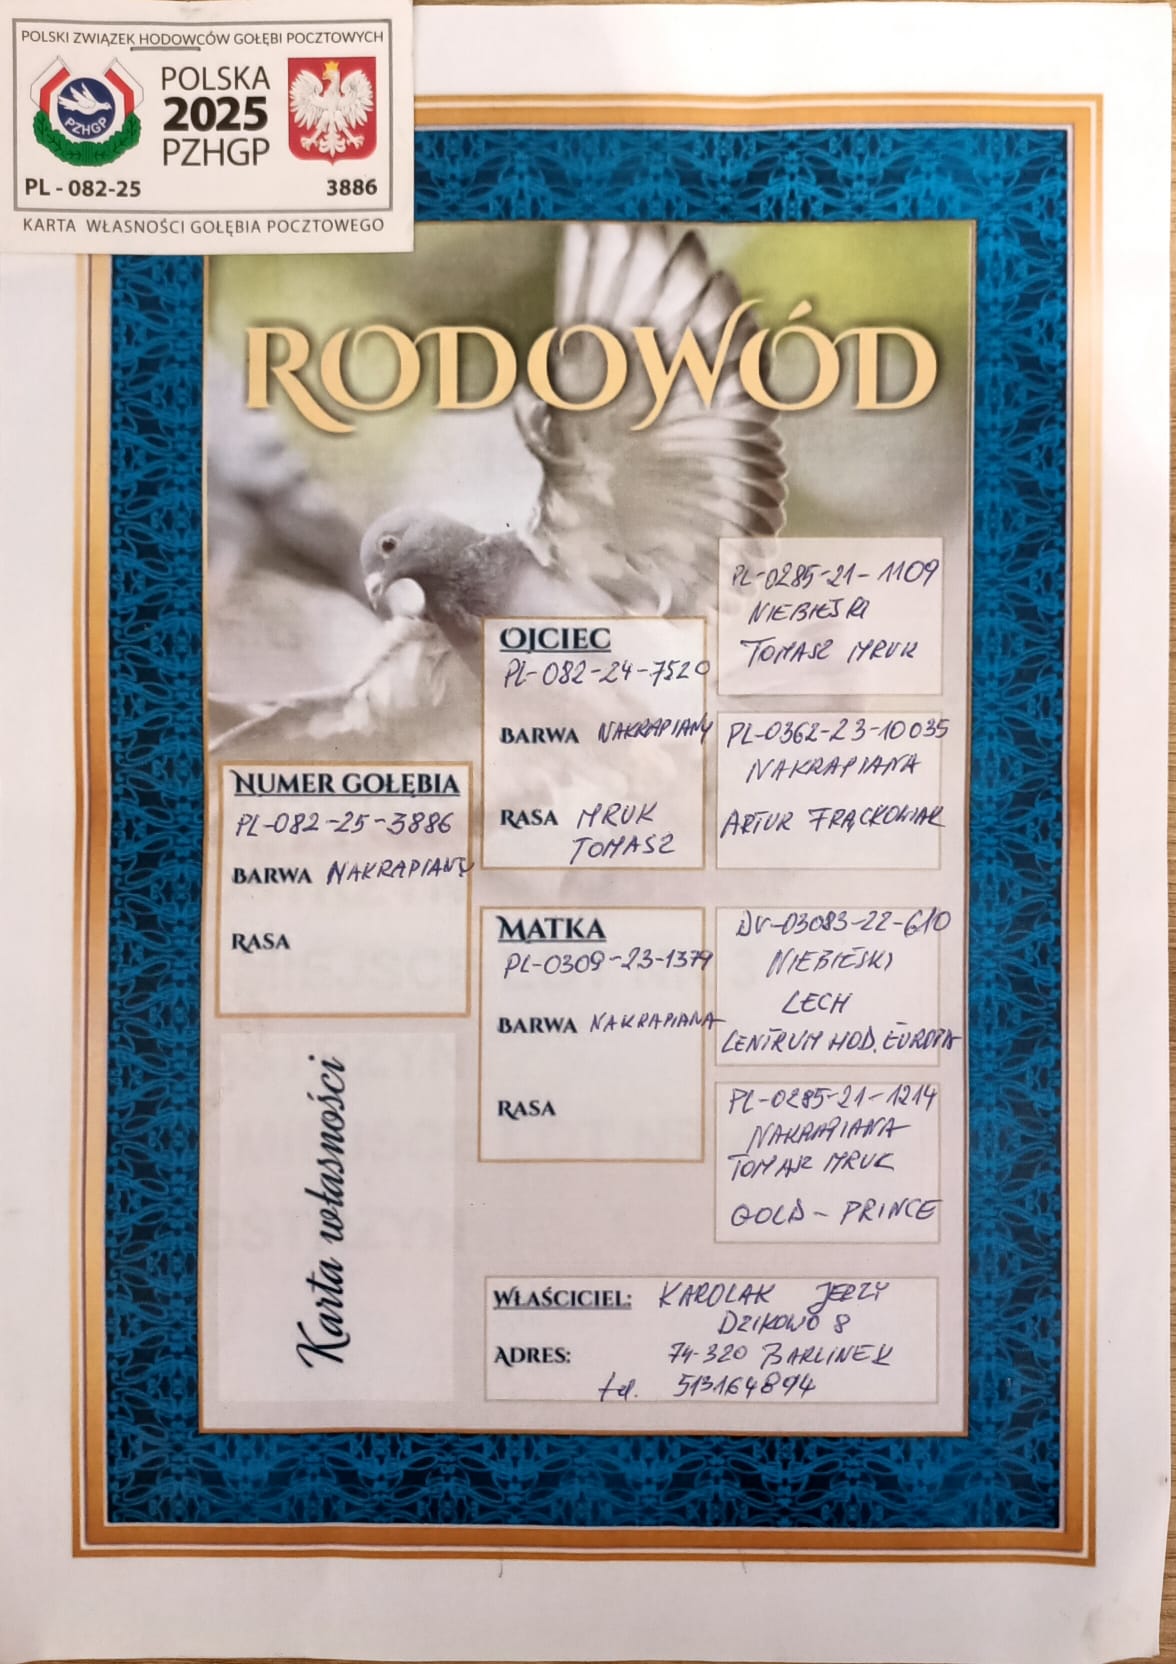 POLSKI ZWIĄZEK HODOWCÓW GOŁĘBI POCZTOWYCH
PZHGP
POLSKA
2025
PZHGP
PL - 082-25 3886
KARTA WŁASNOŚCI GOŁĘBIA POCZTOWEGO
RODOWÓD
NUMER GOŁĘBIA
PL-082-25-3886
BARWA NAKRAPIANY
RASA
OJCIEC
PL-082-24-7520
BARWA NAKRAPIANY
RASA MRUK
TOMASZ
MATKA
PL-0309-23-1379
BARWA NAKRAPIANA
RASA
PL-0285-21-1109
NIEBIESKI
TOMASZ MRUK
PL-0362-23-10035
NAKRAPIANA
ARTUR FRĄCKOWIAK
DV-03083-22-610
NIEBIESKI
LECH
CENTRUM HOD. EUROPA
PL-0285-21-1214
NAKRAPIANA
TOMASZ MRUK
GOLD - PRINCE
Karta własności
WŁAŚCICIEL: KAROLAK JERZY
DZIKOWO 8
ADRES: 74-320 BARLINEK
tel. 513164894